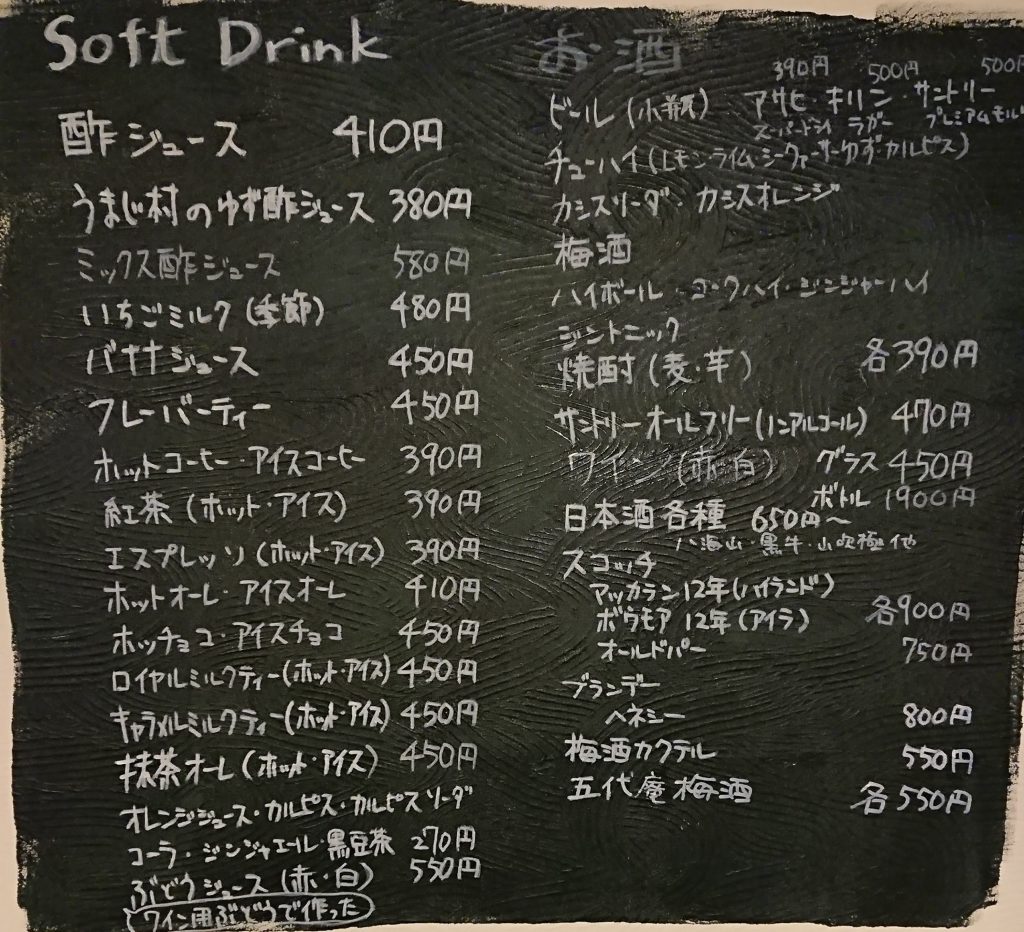 Soft Drink
酢ジュース 410円
うまじ村のゆず酢ジュース 380円
ミックス酢ジュース 580円
いちごミルク(季節) 480円
バナナジュース 450円
フレーバーティー 450円
ホットコーヒー・アイスコーヒー 390円
紅茶(ホット・アイス) 390円
エスプレッソ(ホット・アイス) 390円
ホットオーレ・アイスオーレ 410円
ホッチョコ・アイスチョコ 450円
ロイヤルミルクティー(ホット・アイス) 450円
キャラメルミルクティー(ホット・アイス) 450円
抹茶オーレ(ホット・アイス) 450円
オレンジジュース・カルピス・カルピスソーダ
コーラ・ジンジャエール・黒豆茶 270円
ぶどうジュース(赤・白) 550円
(ワイン用ぶどうで作った)
お酒
390円 500円 500円
ビール(小瓶) アサヒ・キリン・サントリー
スーパードライ ラガー プレミアムモル
チューハイ(レモン・ライム・シークァーサー・ゆず・カルピス)
カシスソーダ・カシスオレンジ
梅酒
ハイボール・コークハイ・ジンジャーハイ
ジントニック
焼酎(麦・芋) 各390円
サントリーオールフリー(ノンアルコール) 470円
ワイン(赤・白) グラス 450円
ボトル 1900円
日本酒各種 650円〜
八海山・黒牛・山吹極他
スコッチ
マッカラン12年(ハイランド)
ボウモア12年(アイラ) 各900円
オールドパー 750円
ブランデー
ヘネシー 800円
梅酒カクテル 550円
五代庵梅酒 各550円